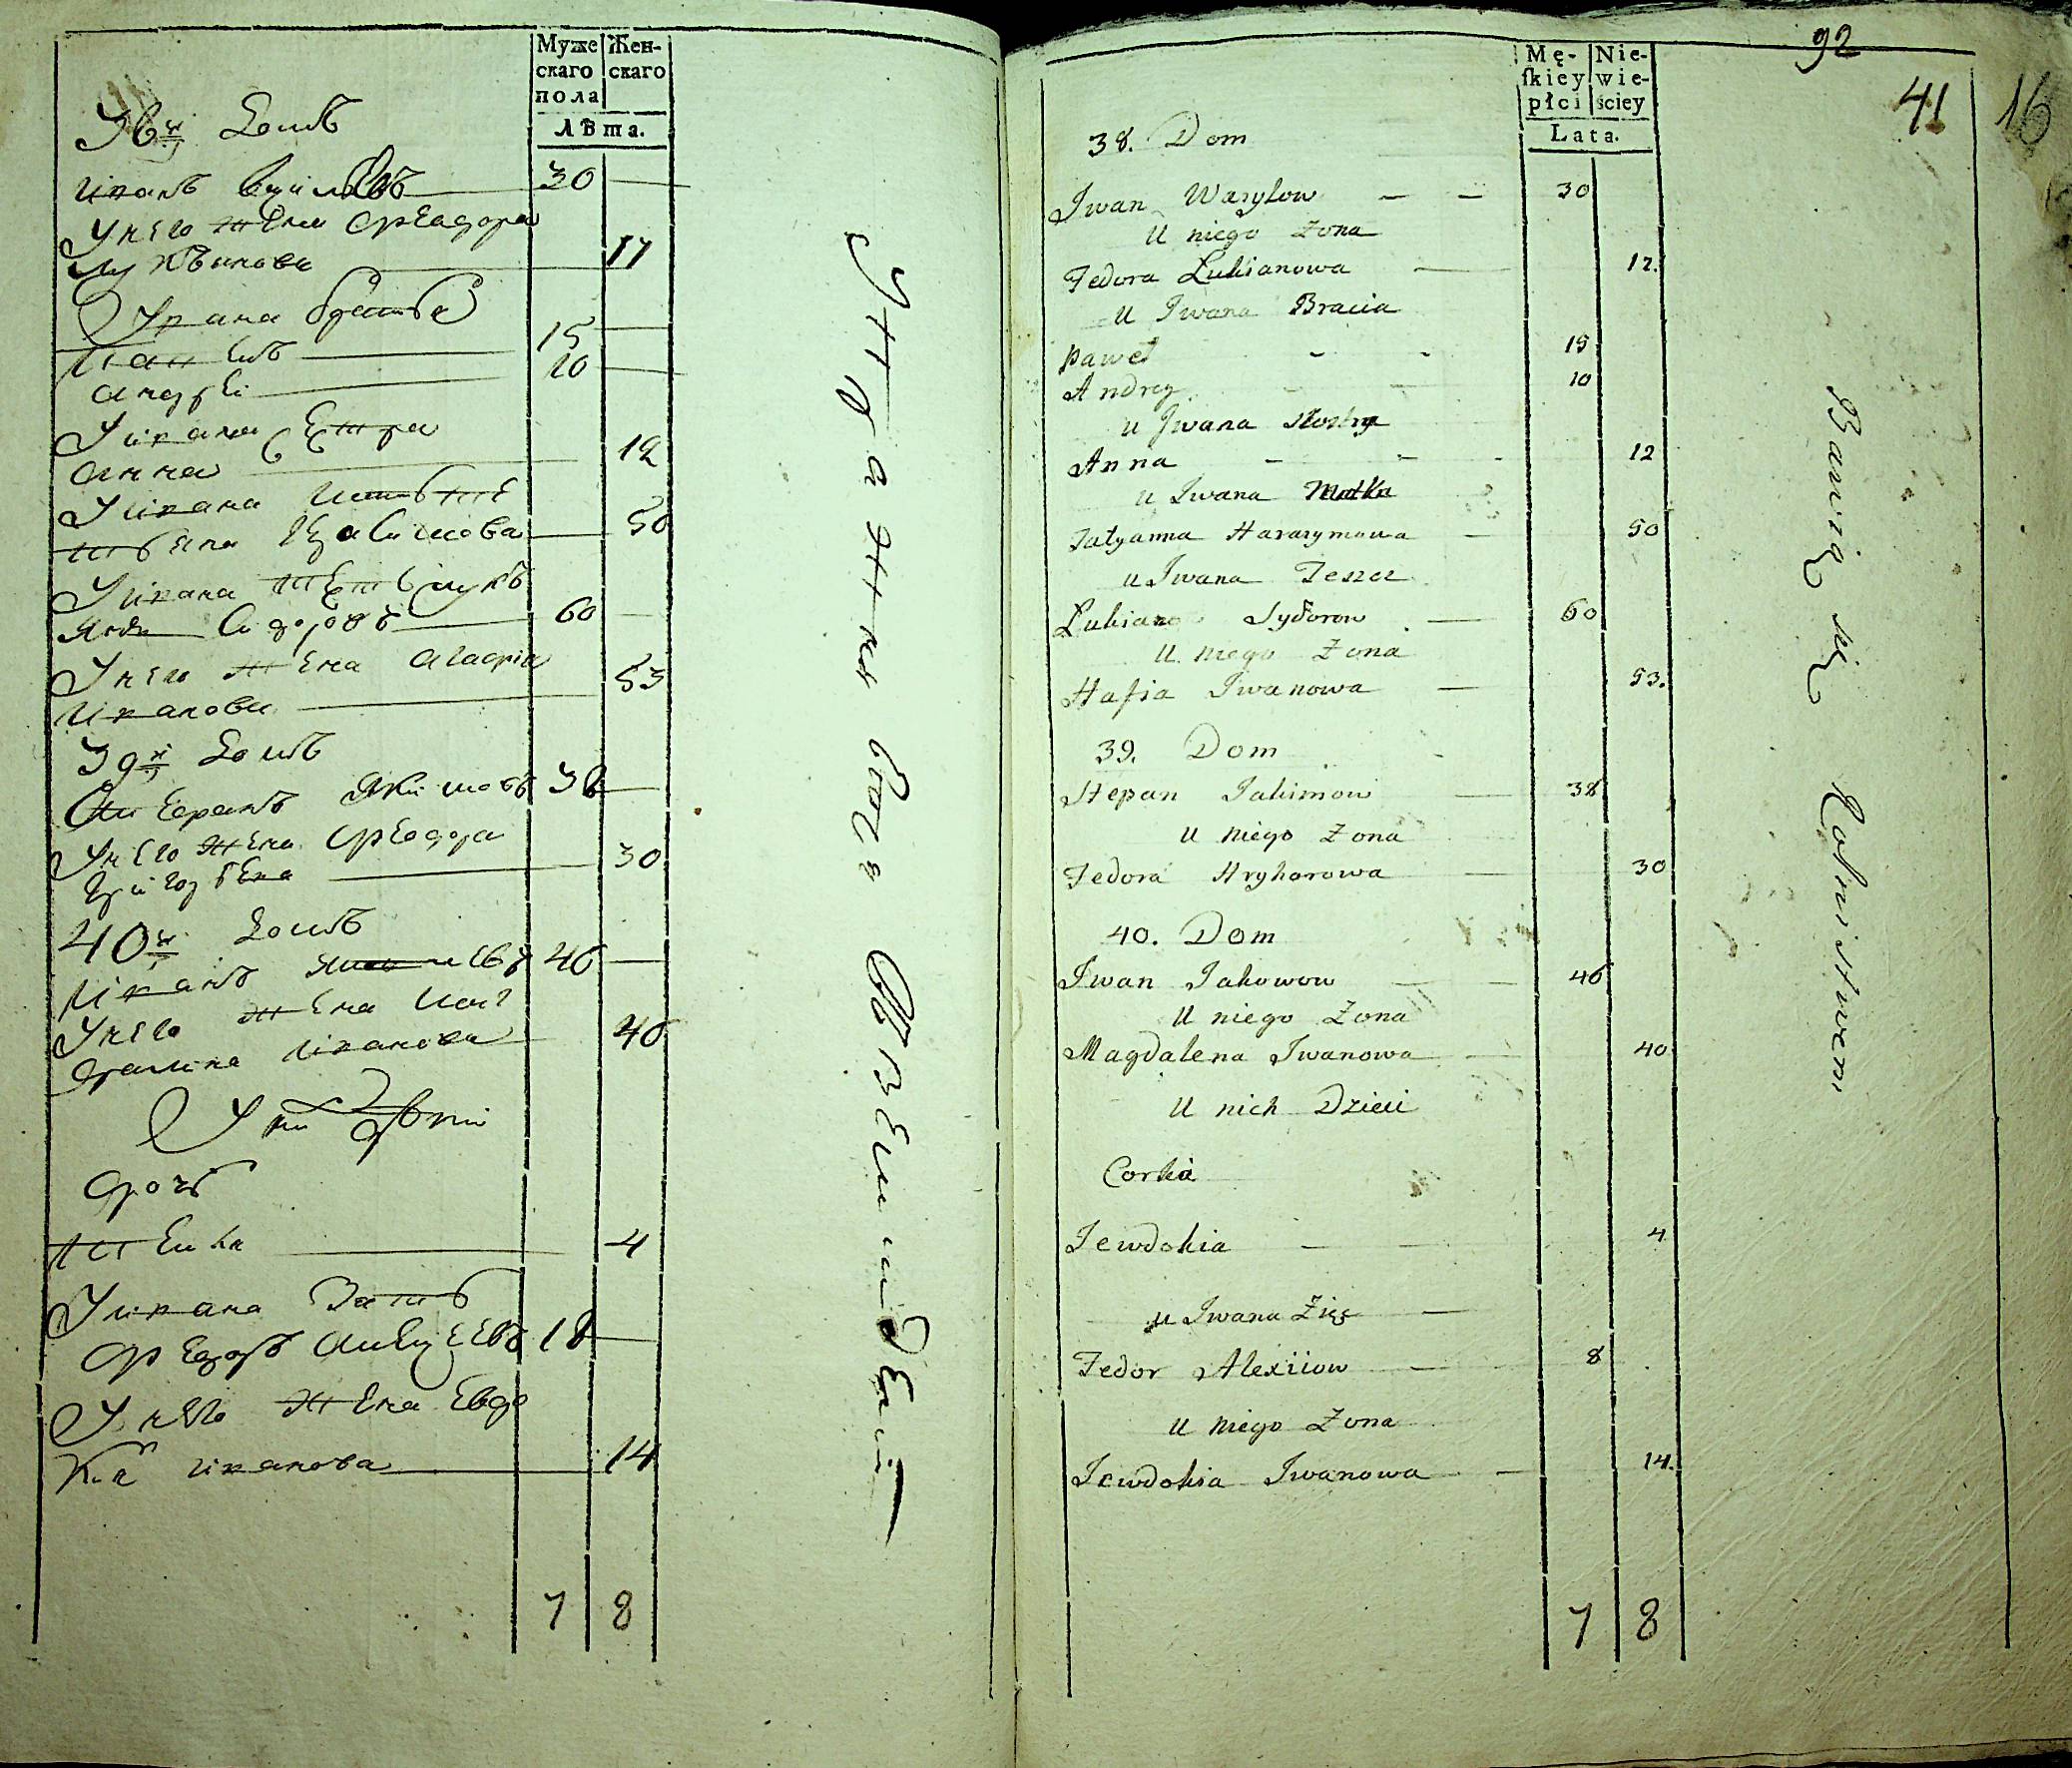 Муже
скаго
пола
Жен-
скаго
Лѣта.
38й Домъ
Иванъ Васильевъ 30
У него жена Феодора
Лукьянова 17
У Ивана братья
Павелъ 15
Андрей 10
У Ивана сестра
Анна 12
У Ивана мать
Татьяна 50
У Ивана
Сидоровъ 60
У него жена Агафия
Иванова 53
39й Домъ
Степанъ Якимовъ 38
У него жена Феодора
Григорьева 30
40й Домъ
Иванъ 46
У него жена Маг
далина Иванова 40
У них дети
дочь
4
У Ивана зять
Федоръ Алексеевъ 18
У него жена Евдо
кия Иванова 14
7 8
92
41
16
Mę-
skiey
płci
Nie-
wie-
ściey
Lata.
38. Dom
Iwan Wasylow 30
U niego Zona
Fedora Lukianowa 17.
U Iwana Bracia
Paweł 15
Andrey 10
u Iwana siostra
Anna 12
u Iwana Matka
Tatyanna Harasymowa 50
u Iwana Teszcz
Lukian Sydorow 60
U niego Zona
Hafia Iwanowa 53.
39. Dom
Stepan Jakimow 38
U niego Zona
Fedora Hryhorowa 30
40. Dom
Iwan Jakowow 46
U niego Zona
Magdalena Iwanowa 40
U nich Dzieci
Corka
Jewdokia 4
u Iwana Zięć
Fedor Alexiiow 8
U niego Zona
Jewdokia Iwanowa 14.
7 8
Bawią się Rolnistwem